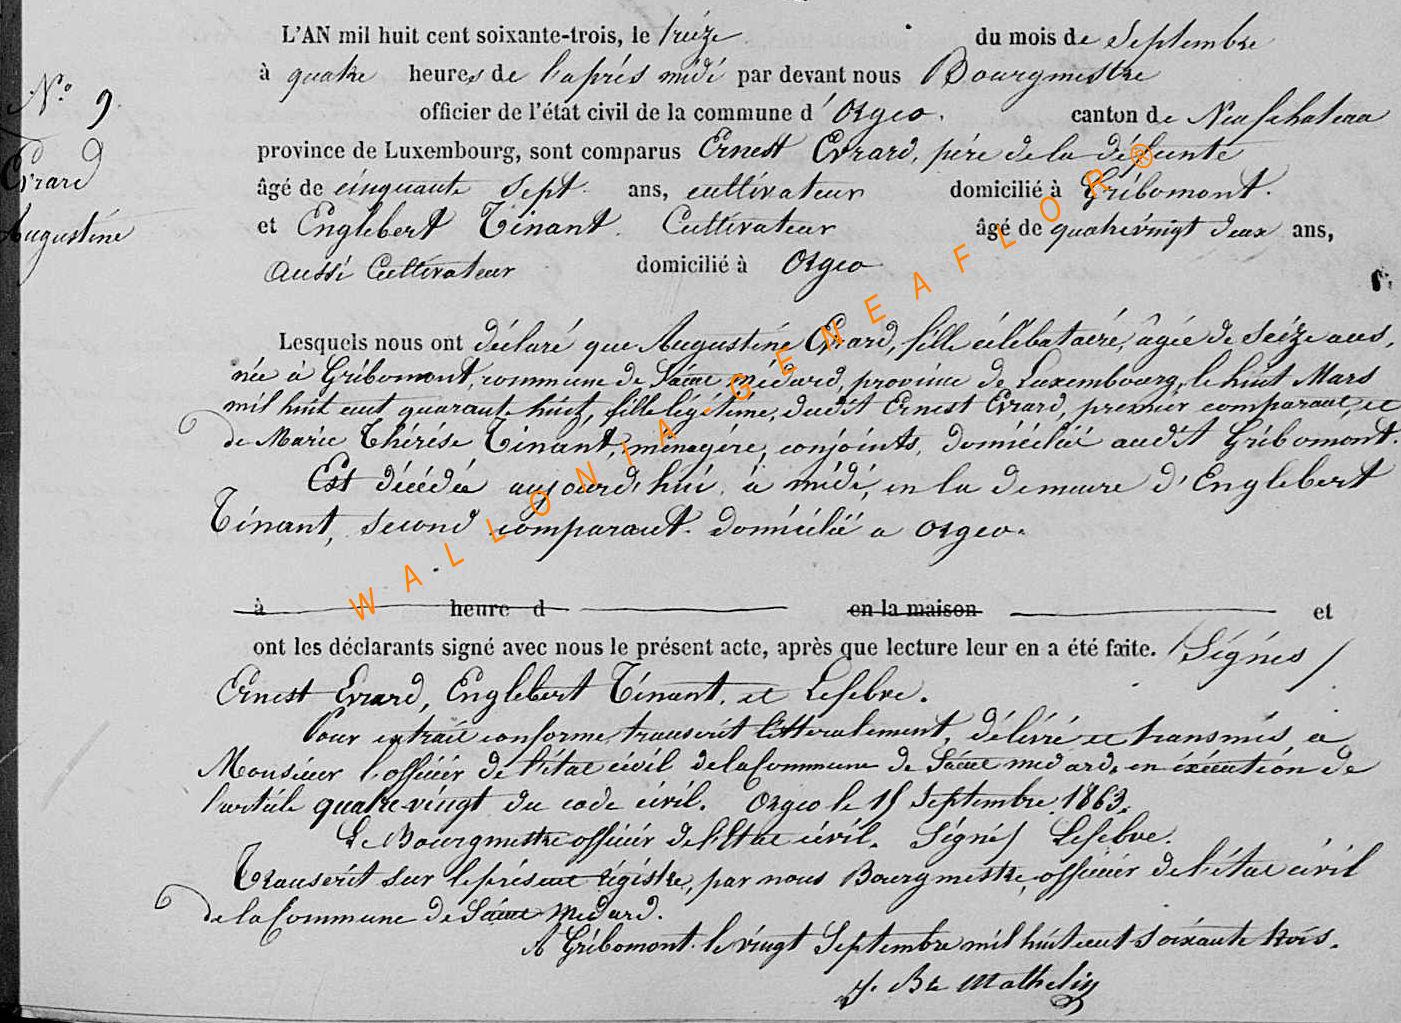 L'AN mil huit cent soixante-trois, le treize du mois de Septembre
à quatre heures de l'après midi par devant nous Bourgmestre
N.° 9.
officier de l'état civil de la commune d'Orgeo. canton de Neufchateau
province de Luxembourg, sont comparus Ernest Evrard, père de la défunte
Evrard
âgé de cinquante sept ans, cultivateur domicilié à Gribomont.
Augustine
et Englebert Tinant. Cultivateur âgé de quatrevingt deux ans,
aussi Cultivateur domicilié à Orgeo
Lesquels nous ont déclaré que Augustine Evrard, fille célébataire, âgée de seize ans,
née à Gribomont, commune de Saint médard, province de Luxembourg, le huit Mars
mil huit cent quarante huit, fille légitime, dudit Ernest Evrard, premier comparant, et
de Marie Thérèse Tinant, ménagère, conjoints, domicilié audit Gribomont.
Est décédée aujourd'hui, à midi, en la demeure d'Englebert
Tinant, second comparant domicilié a Orgeo.
à heure d en la maison et
ont les déclarants signé avec nous le présent acte, après que lecture leur en a été faite. /Signés/
Ernest Evrard, Englebert Tinant, et Lefebvre.
Pour extrait conforme, transcrit littéralement, délivré et transmis a
Monsieur l'officier de l'état civil de la Commune de Saint medard, en exécution de
l'article quatre-vingt du code civil. Orgeo le 15 Septembre 1863.
Le Bourgmestre officier de l'Etat civil. Signé/ Lefebvre.
Transcrit sur le présent régistre, par nous Bourgmestre, officier de l'état civil
de la Commune de Saint Medard.
A Gribomont le vingt Septembre mil huit cent soixante trois.
J. Bte Mathelin
WALLONIA-GENEAFLOR®